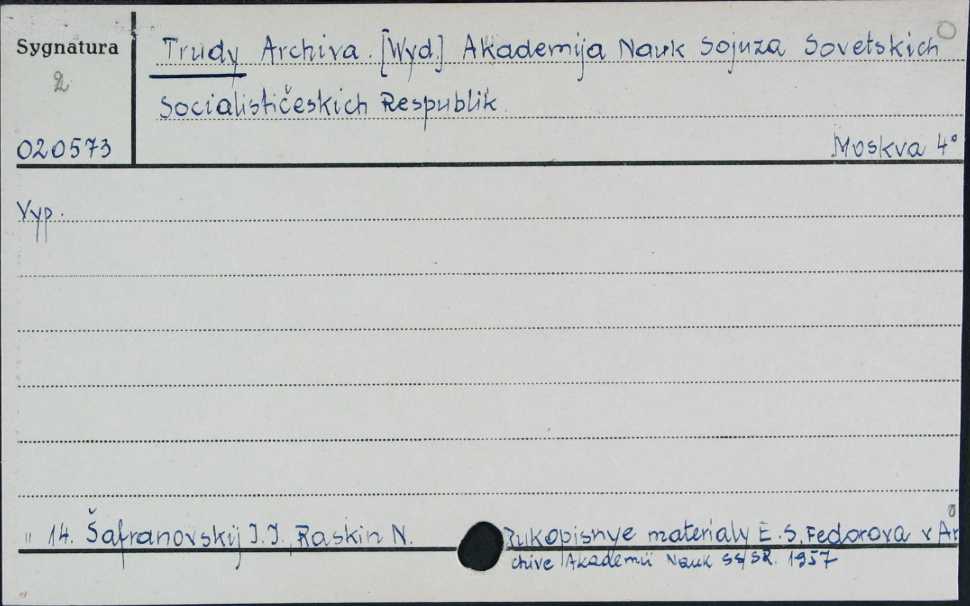 Sygnatura
2
020573
Trudy Archiva. [Wyd.] Akademija Nauk Sojuza Sovetskich
Socialističeskich Respublik.
Moskva 4°
Vyp.
" 14. Šafranovskij I.I., Raskin N. Rukopisnye materialy E.S. Fedorova v Ar
chive Akademii Nauk SSSR. 1957